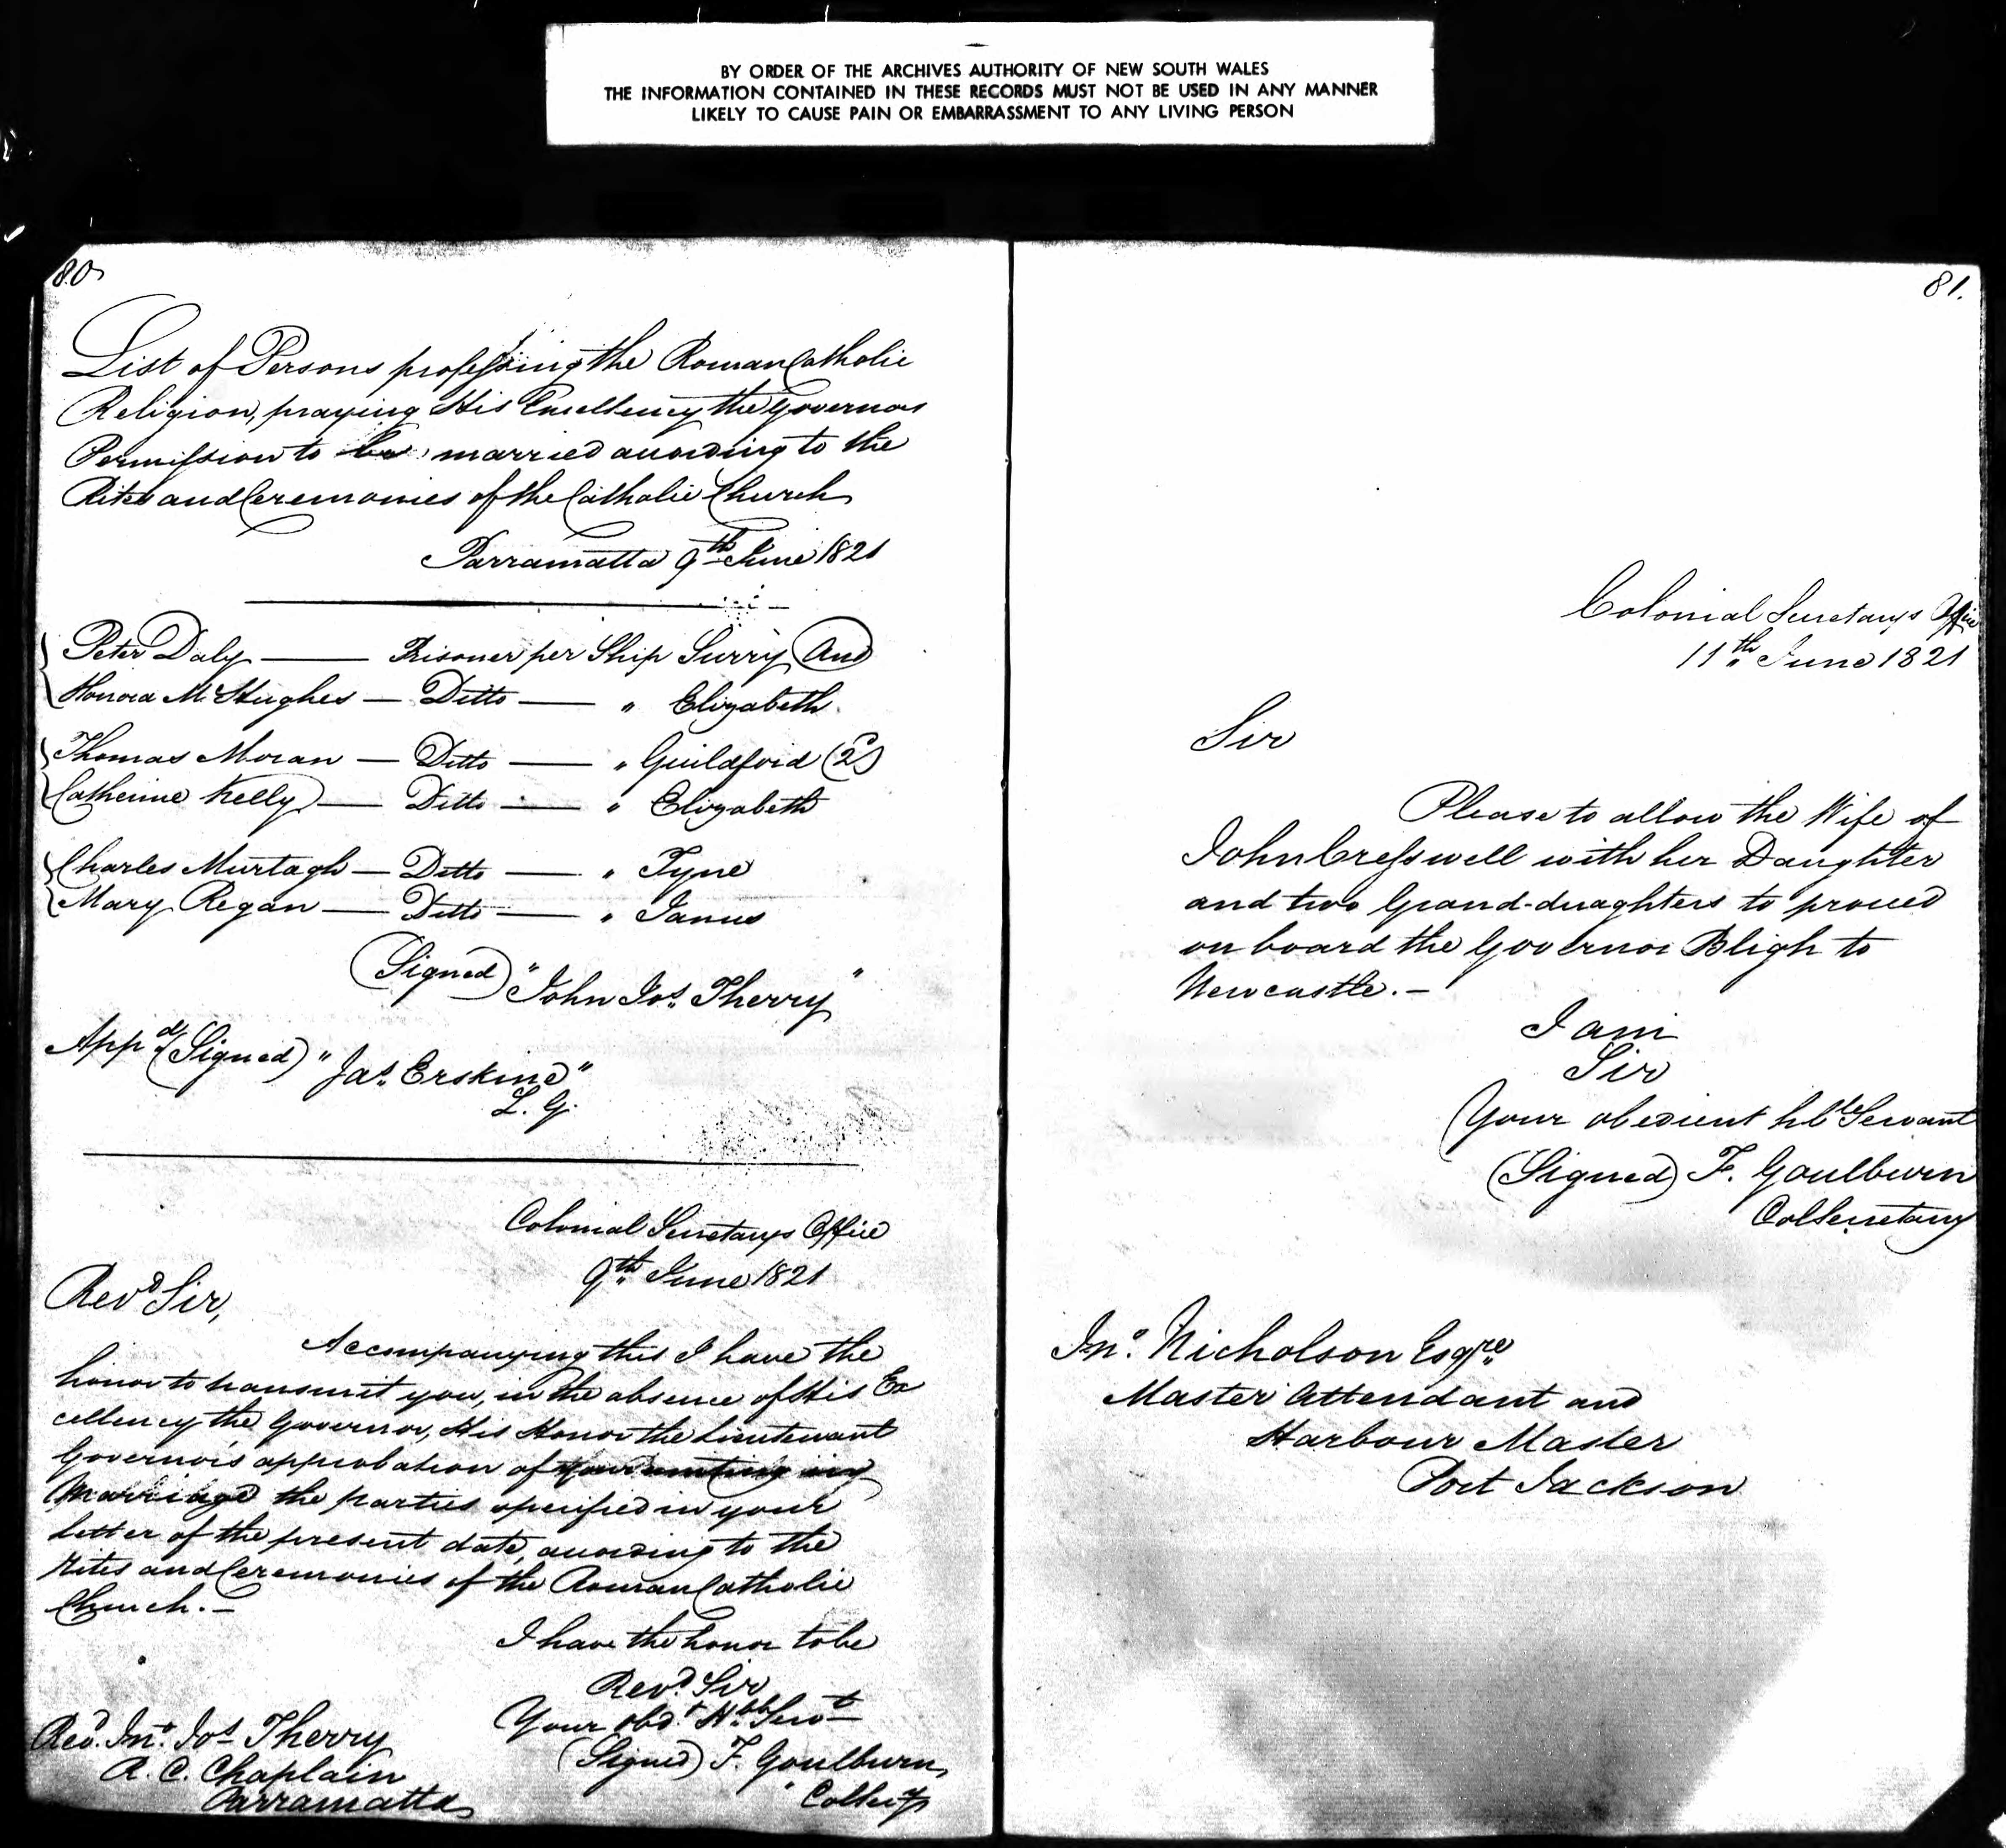 BY ORDER OF THE ARCHIVES AUTHORITY OF NEW SOUTH WALES
THE INFORMATION CONTAINED IN THESE RECORDS MUST NOT BE USED IN ANY MANNER
LIKELY TO CAUSE PAIN OR EMBARRASSMENT TO ANY LIVING PERSON
80
List of Persons professing the Roman Catholic
Religion, praying His Excellency the Governors
Permission to be married according to the
Rites and Ceremonies of the Catholic Church
Parramatta 9th June 1821
Peter Daly — Prisoner per Ship Surry And
Honora McHughes — Ditto — " Elizabeth
Thomas Moran — Ditto — " Guildford (2d)
Catherine Kelly — Ditto — " Elizabeth
Charles Murtagh — Ditto — " Tyne
Mary Regan — Ditto — " Janus
(Signed) "John Jos. Therry"
Appd (Signed) "Jas. Erskine"
L. G.
Colonial Secretarys Office
9th June 1821
Revd Sir,
Accompanying this I have the
honor to transmit you, in the absence of His Ex
cellency the Governor, His Honor the Lieutenant
Governor's approbation of your uniting in
Marriage the parties specified in your
letter of the present date, according to the
Rites and Ceremonies of the Roman Catholic
Church. —
I have the honor to be
Revd Sir
Your obdt Hble Servt
(Signed) F. Goulburn
Col Secy
Revd Jno. Jos Therry
R. C. Chaplain
Parramatta
81.
Colonial Secretarys Office
11th June 1821
Sir
Please to allow the Wife of
John Cresswell with her Daughter
and two Grand-duaghters to proceed
on board the Governor Bligh to
Newcastle. —
I am
Sir
Your obedient hble Servant
(Signed) F. Goulburn
Col Secretary
Jno. Nicholson Esqre
Master Attendant and
Harbour Master
Port Jackson